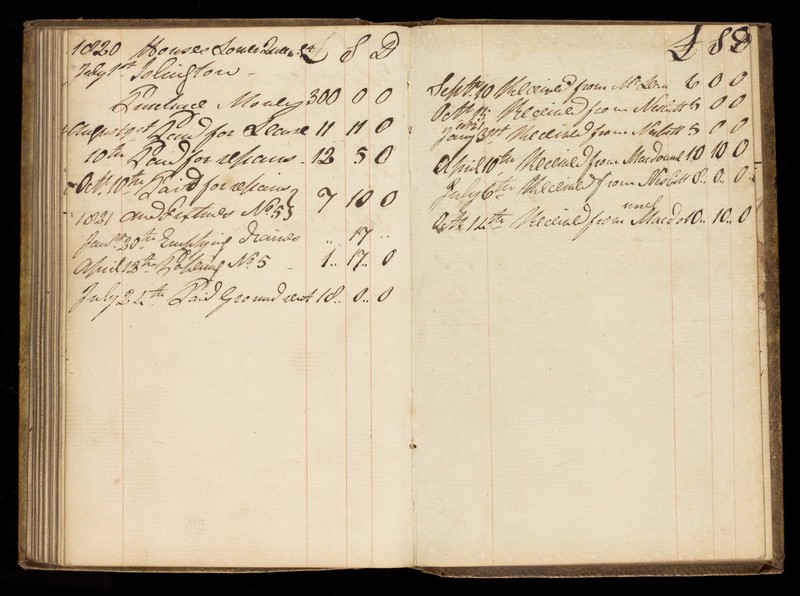 1820 Houses Lower £ S D
July 1st Islington -
Purchase Money 300 0 0
August 9st Paid for Lease 11 11 0
10th Paid for repairs - 12 5 0
Octr. 10th Paid for repairs
1821 and Fixtures No. 5 7 10 0
Jany 20th Emptying Draines " 17 "
April 12th No 5 - 1.. 17.. 0
July 24th Paid Ground rent 18.. 0.. 0
£ S D
Septbr 10 Received from Mr 6 0 0
Octr 15 Received from Nisbitt 8 0 0
1821
Jany 3rd Received from Nisbitt 8 0 0
April 10th Received from Macdonnel 10 10 0
July 6th Received from Nisbitt 8.. 0.. 0
nnel
Octr 12th Received from Macdo 10.. 10.. 0